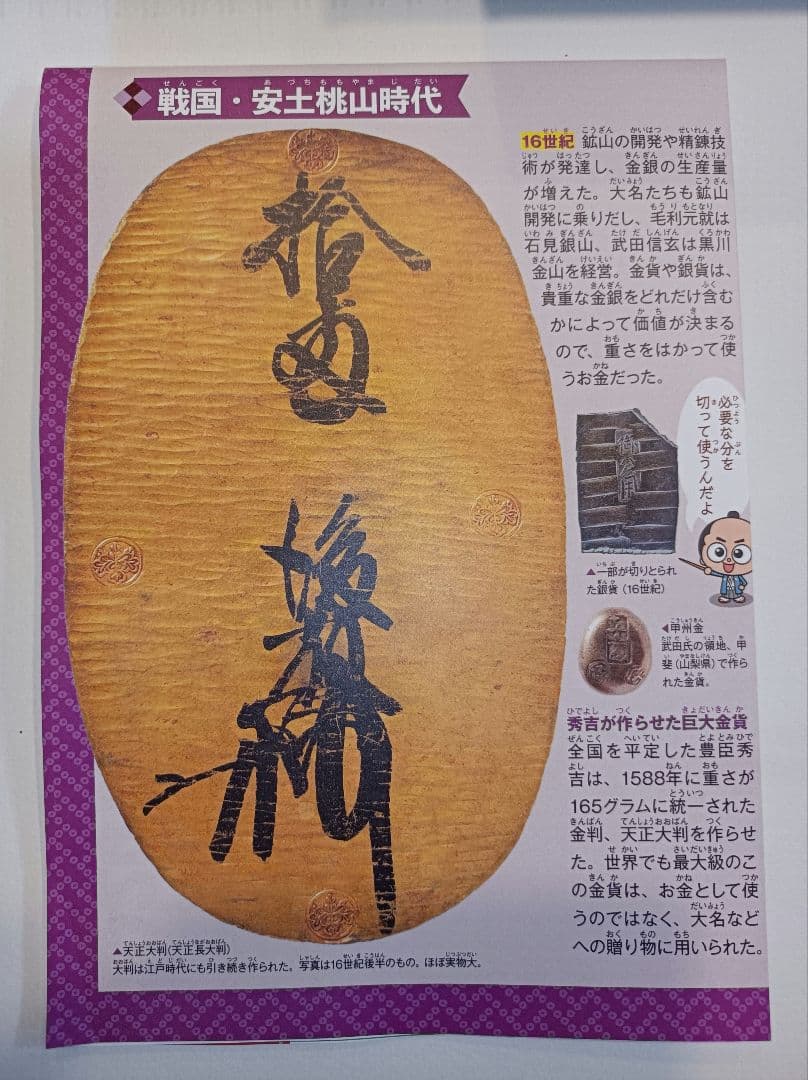 戦国・安土桃山時代
拾両
後藤
16世紀 鉱山の開発や精錬技
術が発達し、金銀の生産量
が増えた。大名たちも鉱山
開発に乗りだし、毛利元就は
石見銀山、武田信玄は黒川
金山を経営。金貨や銀貨は、
貴重な金銀をどれだけ含む
かによって価値が決まる
ので、重さをはかって使
うお金だった。
必要な分を
切って使うんだよ
御公用
▲一部が切りとられ
た銀貨（16世紀）
◀甲州金
武田氏の領地、甲
斐（山梨県）で作ら
れた金貨。
秀吉が作らせた巨大金貨
全国を平定した豊臣秀
吉は、1588年に重さが
165グラムに統一された
金判、天正大判を作らせ
た。世界でも最大級のこ
の金貨は、お金として使
うのではなく、大名など
への贈り物に用いられた。
▲天正大判（天正長大判）
大判は江戸時代にも引き続き作られた。写真は16世紀後半のもの。ほぼ実物大。